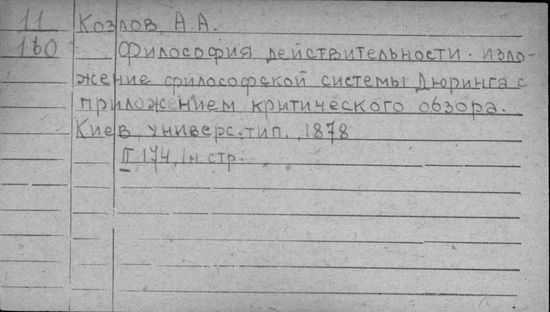 11 Козлов А.А.
160 Философия действительности. Изло-
жение философской системы Дюринга с
приложением критического обзора.
Киев, универс. тип. 1878
II 174, 1н. стр.